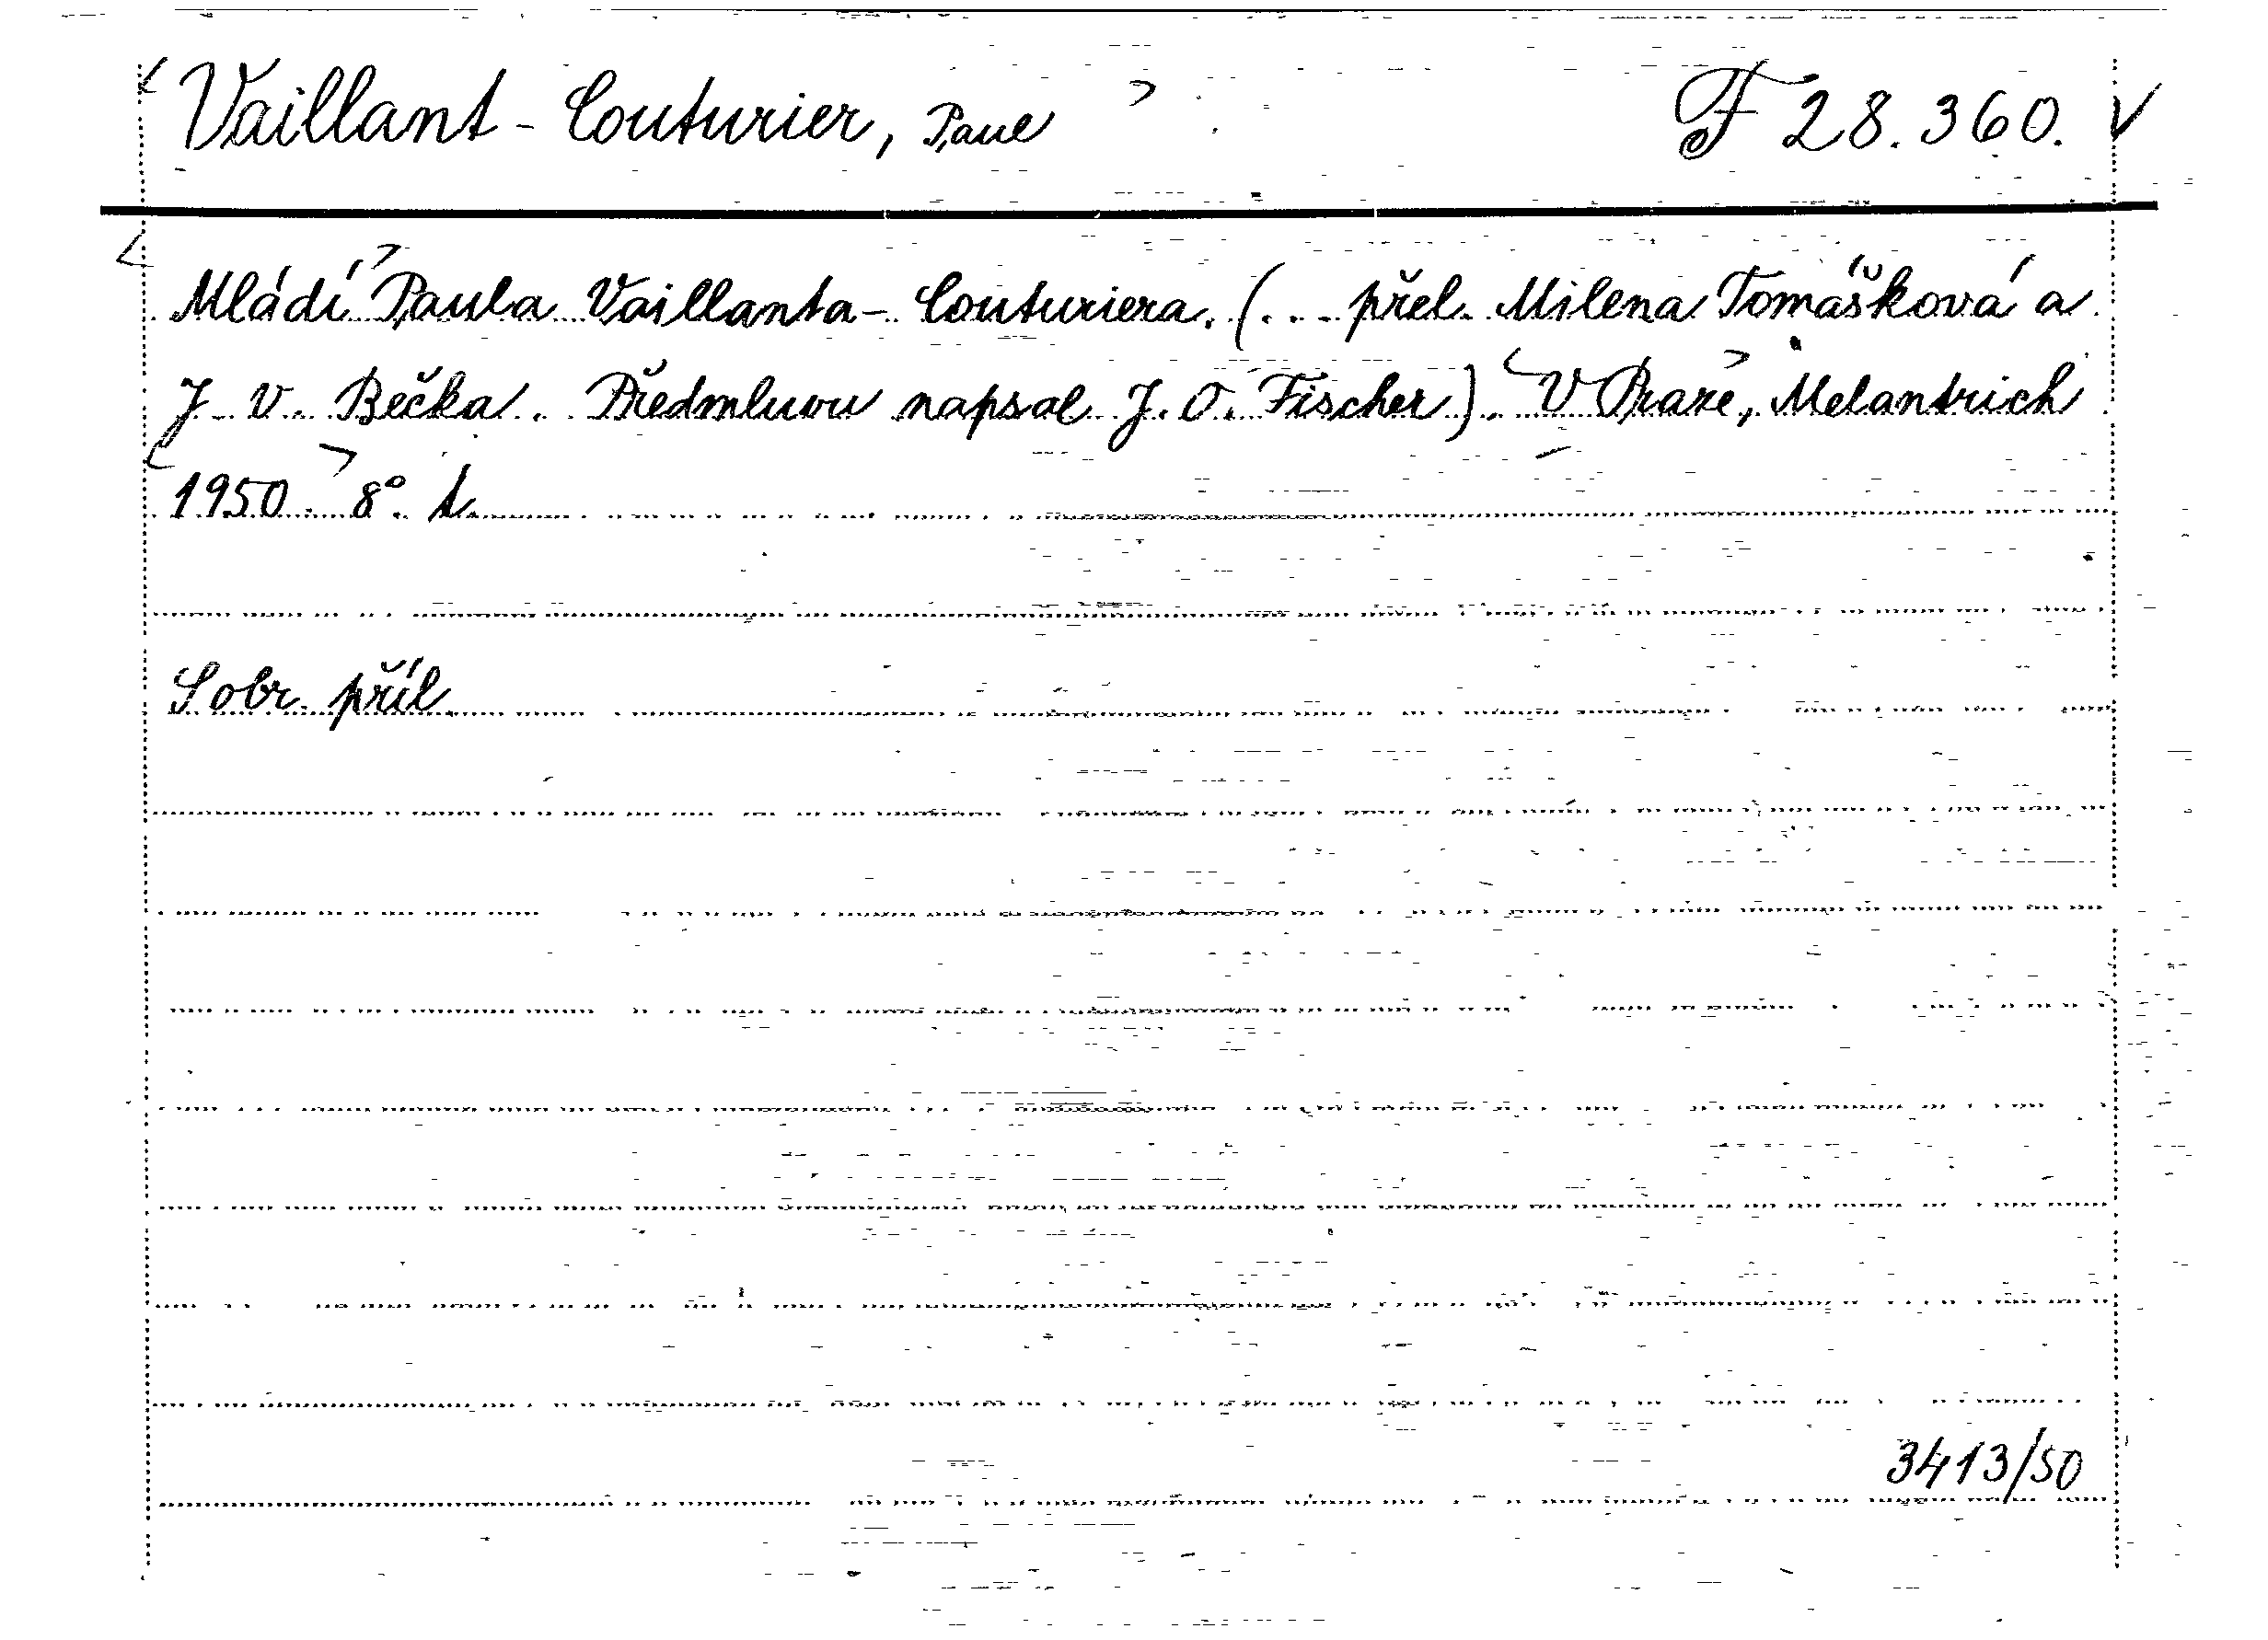 Vaillant-Couturier, Paul F 28.360. V
Mládí Paula Vaillanta-Couturiera. (... přel. Milena Tomášková a
J. V. Bečka. Předmluvu napsal J. O. Fischer). V Praze, Melantrich
1950. 8°.
S obr. příl.
3413/50